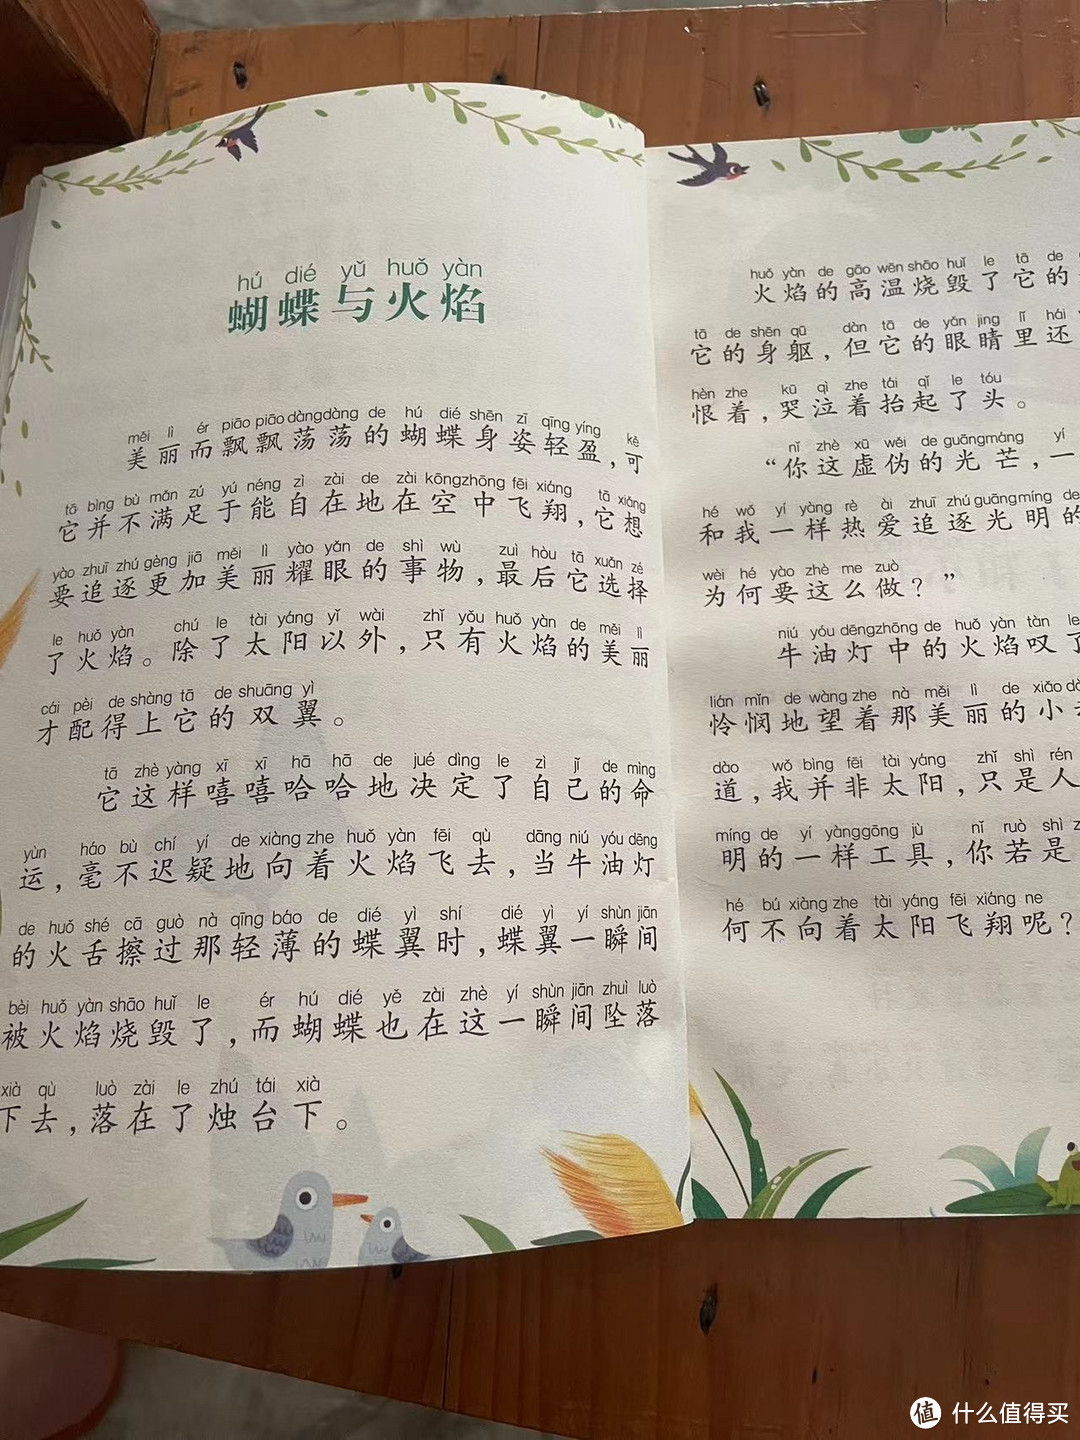 hú dié yǔ huǒ yàn
蝴蝶与火焰
měi lì ér piāo piāo dàng dàng de hú dié shēn zī qīng yíng kě
美丽而飘飘荡荡的蝴蝶身姿轻盈，可
tā bìng bù mǎn zú yú néng zì zài de zài kōng zhōng fēi xiáng tā xiǎng
它并不满足于能自在地在空中飞翔，它想
yào zhuī zhú gèng jiā měi lì yào yǎn de shì wù zuì hòu tā xuǎn zé
要追逐更加美丽耀眼的事物，最后它选择
le huǒ yàn chú le tài yáng yǐ wài zhǐ yǒu huǒ yàn de měi lì
了火焰。除了太阳以外，只有火焰的美丽
cái pèi de shàng tā de shuāng yì
才配得上它的双翼。
tā zhè yàng xī xī hā hā de jué dìng le zì jǐ de mìng
它这样嘻嘻哈哈地决定了自己的命
yùn háo bù chí yí de xiàng zhe huǒ yàn fēi qù dāng niú yóu dēng
运，毫不迟疑地向着火焰飞去，当牛油灯
de huǒ shé cā guò nà qīng báo de dié yì shí dié yì yí shùn jiān
的火舌擦过那轻薄的蝶翼时，蝶翼一瞬间
bèi huǒ yàn shāo huǐ le ér hú dié yě zài zhè yí shùn jiān zhuì luò
被火焰烧毁了，而蝴蝶也在这一瞬间坠落
xià qù luò zài le zhú tái xià
下去，落在了烛台下。
huǒ yàn de gāo wēn shāo huǐ le tā de
火焰的高温烧毁了它的
tā de shēn qū dàn tā de yǎn jing lǐ hái
它的身躯，但它的眼睛里还
hèn zhe kū qì zhe tái qǐ le tóu
恨着，哭泣着抬起了头。
nǐ zhè xū wěi de guāng máng yí
“你这虚伪的光芒，一
hé wǒ yí yàng rè ài zhuī zhú guāng míng de
和我一样热爱追逐光明的
wèi hé yào zhè me zuò
为何要这么做？”
niú yóu dēng zhōng de huǒ yàn tàn le
牛油灯中的火焰叹了
lián mǐn de wàng zhe nà měi lì de xiǎo
怜悯地望着那美丽的小
dào wǒ bìng fēi tài yáng zhǐ shì rén
道，我并非太阳，只是人
míng de yí yàng gōng jù nǐ ruò shì
明的一样工具，你若是
hé bú xiàng zhe tài yáng fēi xiáng ne
何不向着太阳飞翔呢？
值 什么值得买